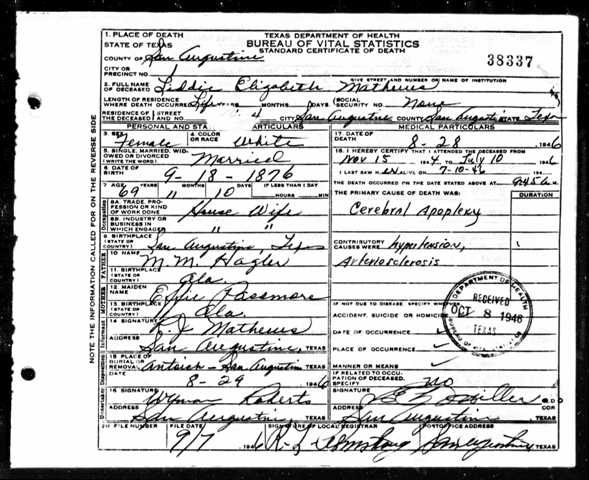 1. PLACE OF DEATH
STATE OF TEXAS
TEXAS DEPARTMENT OF HEALTH
BUREAU OF VITAL STATISTICS
STANDARD CERTIFICATE OF DEATH
38337
COUNTY OF San Augustine
CITY OR
PRECINCT NO.
GIVE STREET AND NUMBER OR NAME OF INSTITUTION
2. FULL NAME
OF DECEASED Liddie Elizabeth Mathews
LENGTH OF RESIDENCE
WHERE DEATH OCCURRED Life YEARS MONTHS DAYS SOCIAL
SECURITY NO. None
RESIDENCE OF STREET
THE DECEASED AND NO. 4 CITY San Augustine COUNTY San Augustine STATE Tex
PERSONAL AND STA ARTICULARS
MEDICAL PARTICULARS
3. SEX Female
4. COLOR
OR RACE White
17. DATE OF
DEATH 8 - 28 1946
5. SINGLE, MARRIED, WID-
OWED OR DIVORCED
(WRITE THE WORD) Married
18. I HEREBY CERTIFY THAT I ATTENDED THE DECEASED FROM
Nov 15 194 4 TO July 10 194 6
6. DATE OF
BIRTH 9 - 18 - 1876
I LAST SAW H ER ALIVE ON 7-10-46
7. AGE 69 11 10 IF LESS THAN 1 DAY
HOURS MIN
THE DEATH OCCURRED ON THE DATE STATED ABOVE AT 9:45 a M.
8A. TRADE, PRO-
FESSION OR KIND
OF WORK DONE House Wife
THE PRIMARY CAUSE OF DEATH WAS:
DURATION
Cerebral Apoplexy
8B. INDUSTRY OR
BUSINESS IN
WHICH ENGAGED " "
9. BIRTHPLACE
(STATE OR
COUNTRY) San Augustine, Tex
CONTRIBUTORY
CAUSES WERE hypertension,
Arteriosclerosis
10 NAME M. M. Hagler
11. BIRTHPLACE
(STATE OR
COUNTRY) Ala.
12. MAIDEN
NAME Effie Passmore
13. BIRTHPLACE
(STATE OR
COUNTRY) Ala.
IF NOT DUE TO DISEASE, SPECIFY WHETHER
ACCIDENT, SUICIDE OR HOMICIDE
DEPARTMENT OF HEALTH
RECEIVED
OCT 8 1946
TEXAS
14. SIGNATURE R. J. Mathews
DATE OF OCCURRENCE
ADDRESS San Augustine, TEXAS
PLACE OF OCCURRENCE
15. PLACE OF
BURIAL OR
REMOVAL Antioch - San Augustine TEXAS
MANNER OR MEANS
8 - 29 194 6
IF RELATED TO OCCU-
PATION OF DECEASED,
SPECIFY No
16. SIGNATURE Wyman Roberts
SIGNATURE
ADDRESS San Augustine TEXAS
ADDRESS San Augustine TEXAS
20. FILE NUMBER
FILE DATE 9/7 194 6
SIGNATURE OF LOCAL REGISTRAR
POSTOFFICE ADDRESS
TEXAS
NOTE THE INFORMATION CALLED FOR ON THE REVERSE SIDE
Occupation
FATHER
MOTHER
Informant
Undertaker